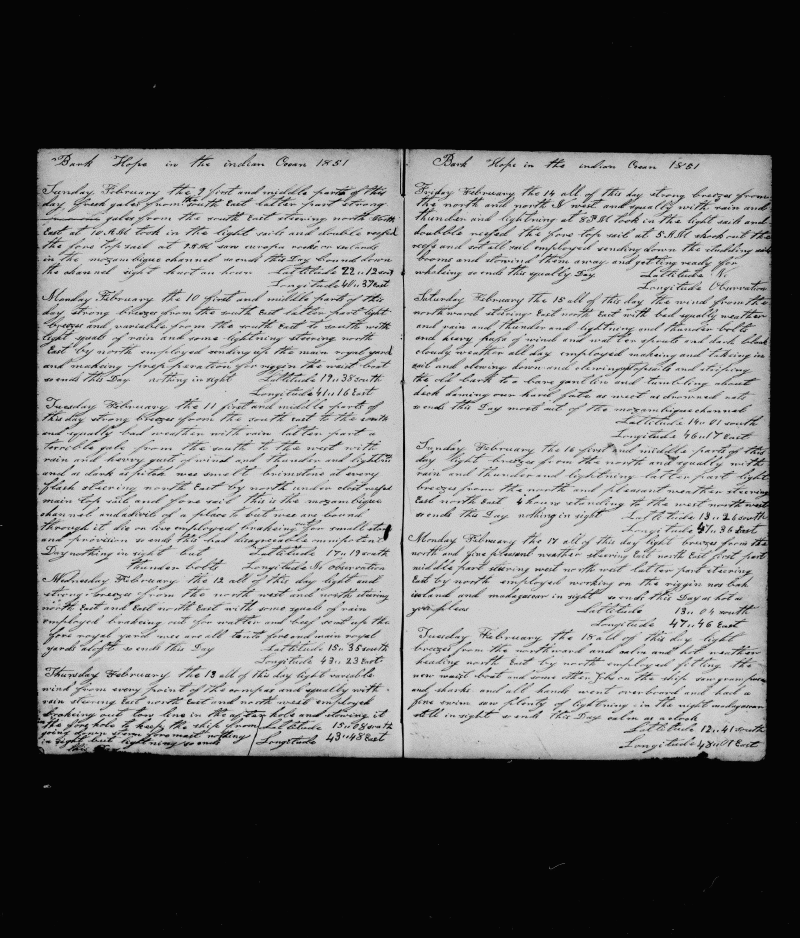 Bark Hope in the indian Ocean 1851
Sunday February the 9 first and middle parts of this
day fresh gales from the south East latter part strong
gales from the south East steering north
East at 10 A.M took in the light sails and double reefed
the fore top sail at 2 P.M saw europa rocks or islands
in the mozambique channel so ends this Day bound down
the channel sight hurt an hour Lattitude 22 11 12 south
Longitude 40 11 37 East
Monday February the 10 first and middle parts of this
day strong breezes from the south East latter part light
breezes and variable from the south East to south with
light squals of rain and some lightning steering north
East by north employed sending up the main royal yard
and makeing preparation for riggin the waist boat
so ends this Day nothing in sight Lattitude 19 11 38 south
Longitude 41 11 16 East
Tuesday February the 11 first and middle parts of
this day strong breezes from the south East to the south
and squally bad weather with rain latter part a
terrible gale from the south to the west with
rain and heavy gusts of wind and thunder and lightnin
and as dark as pitch wee smelt brimstone at every
flash steering north East by north under close reefed
main top sail and fore sail this is the mozambique
channel and a divil of a place it but wee are bound
through it die or live employed brakeing out small stores
and provision so ends this bad disagreeable
Day nothing in sight but Lattitude 17 11 19 south
thunder bolts Longitude No observation
Wednesday February the 12 all of this day light and
strong breezes from the north west and north steering
north East and East north East with some squals of rain
employed brakeing out for watter and beef sent up the
fore royal yard wee are all fore and main royal
yards aloft so ends this Day Lattitude 15 11 35 south
Longitude 43 11 23 East
Thursday February the 13 all of this day light variable
wind from every point of the compass and squally with
rain steering East north East and north west employed
brakeing out tow line in the after hole and stowing it
in the fore hole to keep the ship from Lattitude 15 11 08 south
going down starn foremost nothing
in sight but lightning so ends Longitude 43 11 48 East
this Day
Bark Hope in the indian Ocean 1851
Friday February the 14 all of this day strong breezes from
the north and north N west and squally with rain and
thunder and lightning at 8 P.M took in the light sails and
doubble reefed the fore top sail at 5 A.M shook out the
reefs and sot all sail employed sending down the studding sail
booms and stowing them away and getting ready for
whaleing so ends this squally Day Lattitude N.
Longitude Observation
Saturday February the 15 all of this day the wind from the
northward steering East north East with bad squally weather
and rain and thunder and lightning and thunder bolts
and heavy pufs of wind and watter spouts and dark black
cloudy weather all day employed makeing and takeing in
sail and clewing down and clewing up sails and striping
the old bark to a bare gantlin and tumbling about
deck daming our hard fate as weet as drowned rats
so ends this Day most out of the mozambique channel
Lattitude 14 11 01 south
Longitude 46 11 17 East
Sunday February the 16 first and middle parts of this
day light breezes from the north and squally with
rain and thunder and lightning latter part light
breezes from the north and pleasant weather steering
East north East 4 hours standing to the west north west
so ends this Day nothing in sight Lattitude 13 11 26 south
Longitude 47 11 36 East
Monday February the 17 all of this day light breezes from the
north and fine pleasant weather steering East north East first part
middle part steering west north west latter part steering
East by north employed working on the riggin nos bah
island and madagascar in sight so ends this Day as hot a
grease Lattitude 13 11 04 south
Longitude 47 11 46 East
Tuesday February the 18 all of this day light
breezes from the northward and calm and hot weather
heading north East by north employed fitting the
new waist boat and some other jobs on the ship saw grampuses
and sharks and all hands went overboard and had a
fine swim saw plenty of lightning in the night madagascar
still in sight so ends this Day calm as a clock
Lattitude 12 11 41 south
Longitude 48 11 01 East